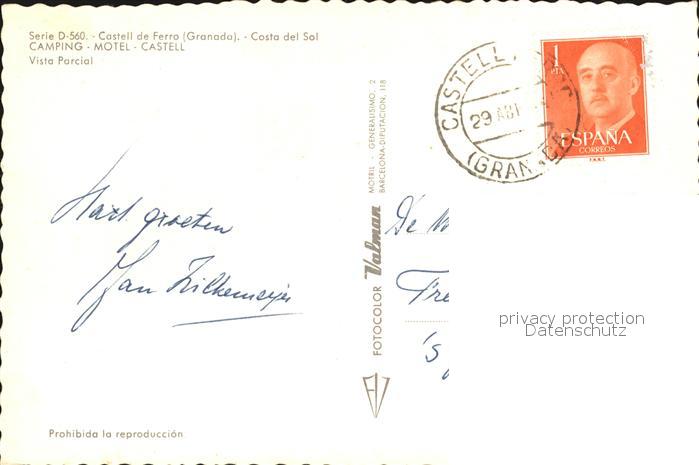 Serie D-560. - Castell de Ferro (Granada). - Costa del Sol
CAMPING - MOTEL - CASTELL
Vista Parcial
Hart. groeten
Jan Zilkemeijer
Prohibida la reproducción
MOTRIL - GENERALISIMO, 2
BARCELONA-DIPUTACION, 118
FOTOCOLOR Valman
CASTELL
29 ABR
(GRANADA)
1
PTA
ESPAÑA
CORREOS
F.N.M.T.
De
Fre
's
privacy protection
Datenschutz